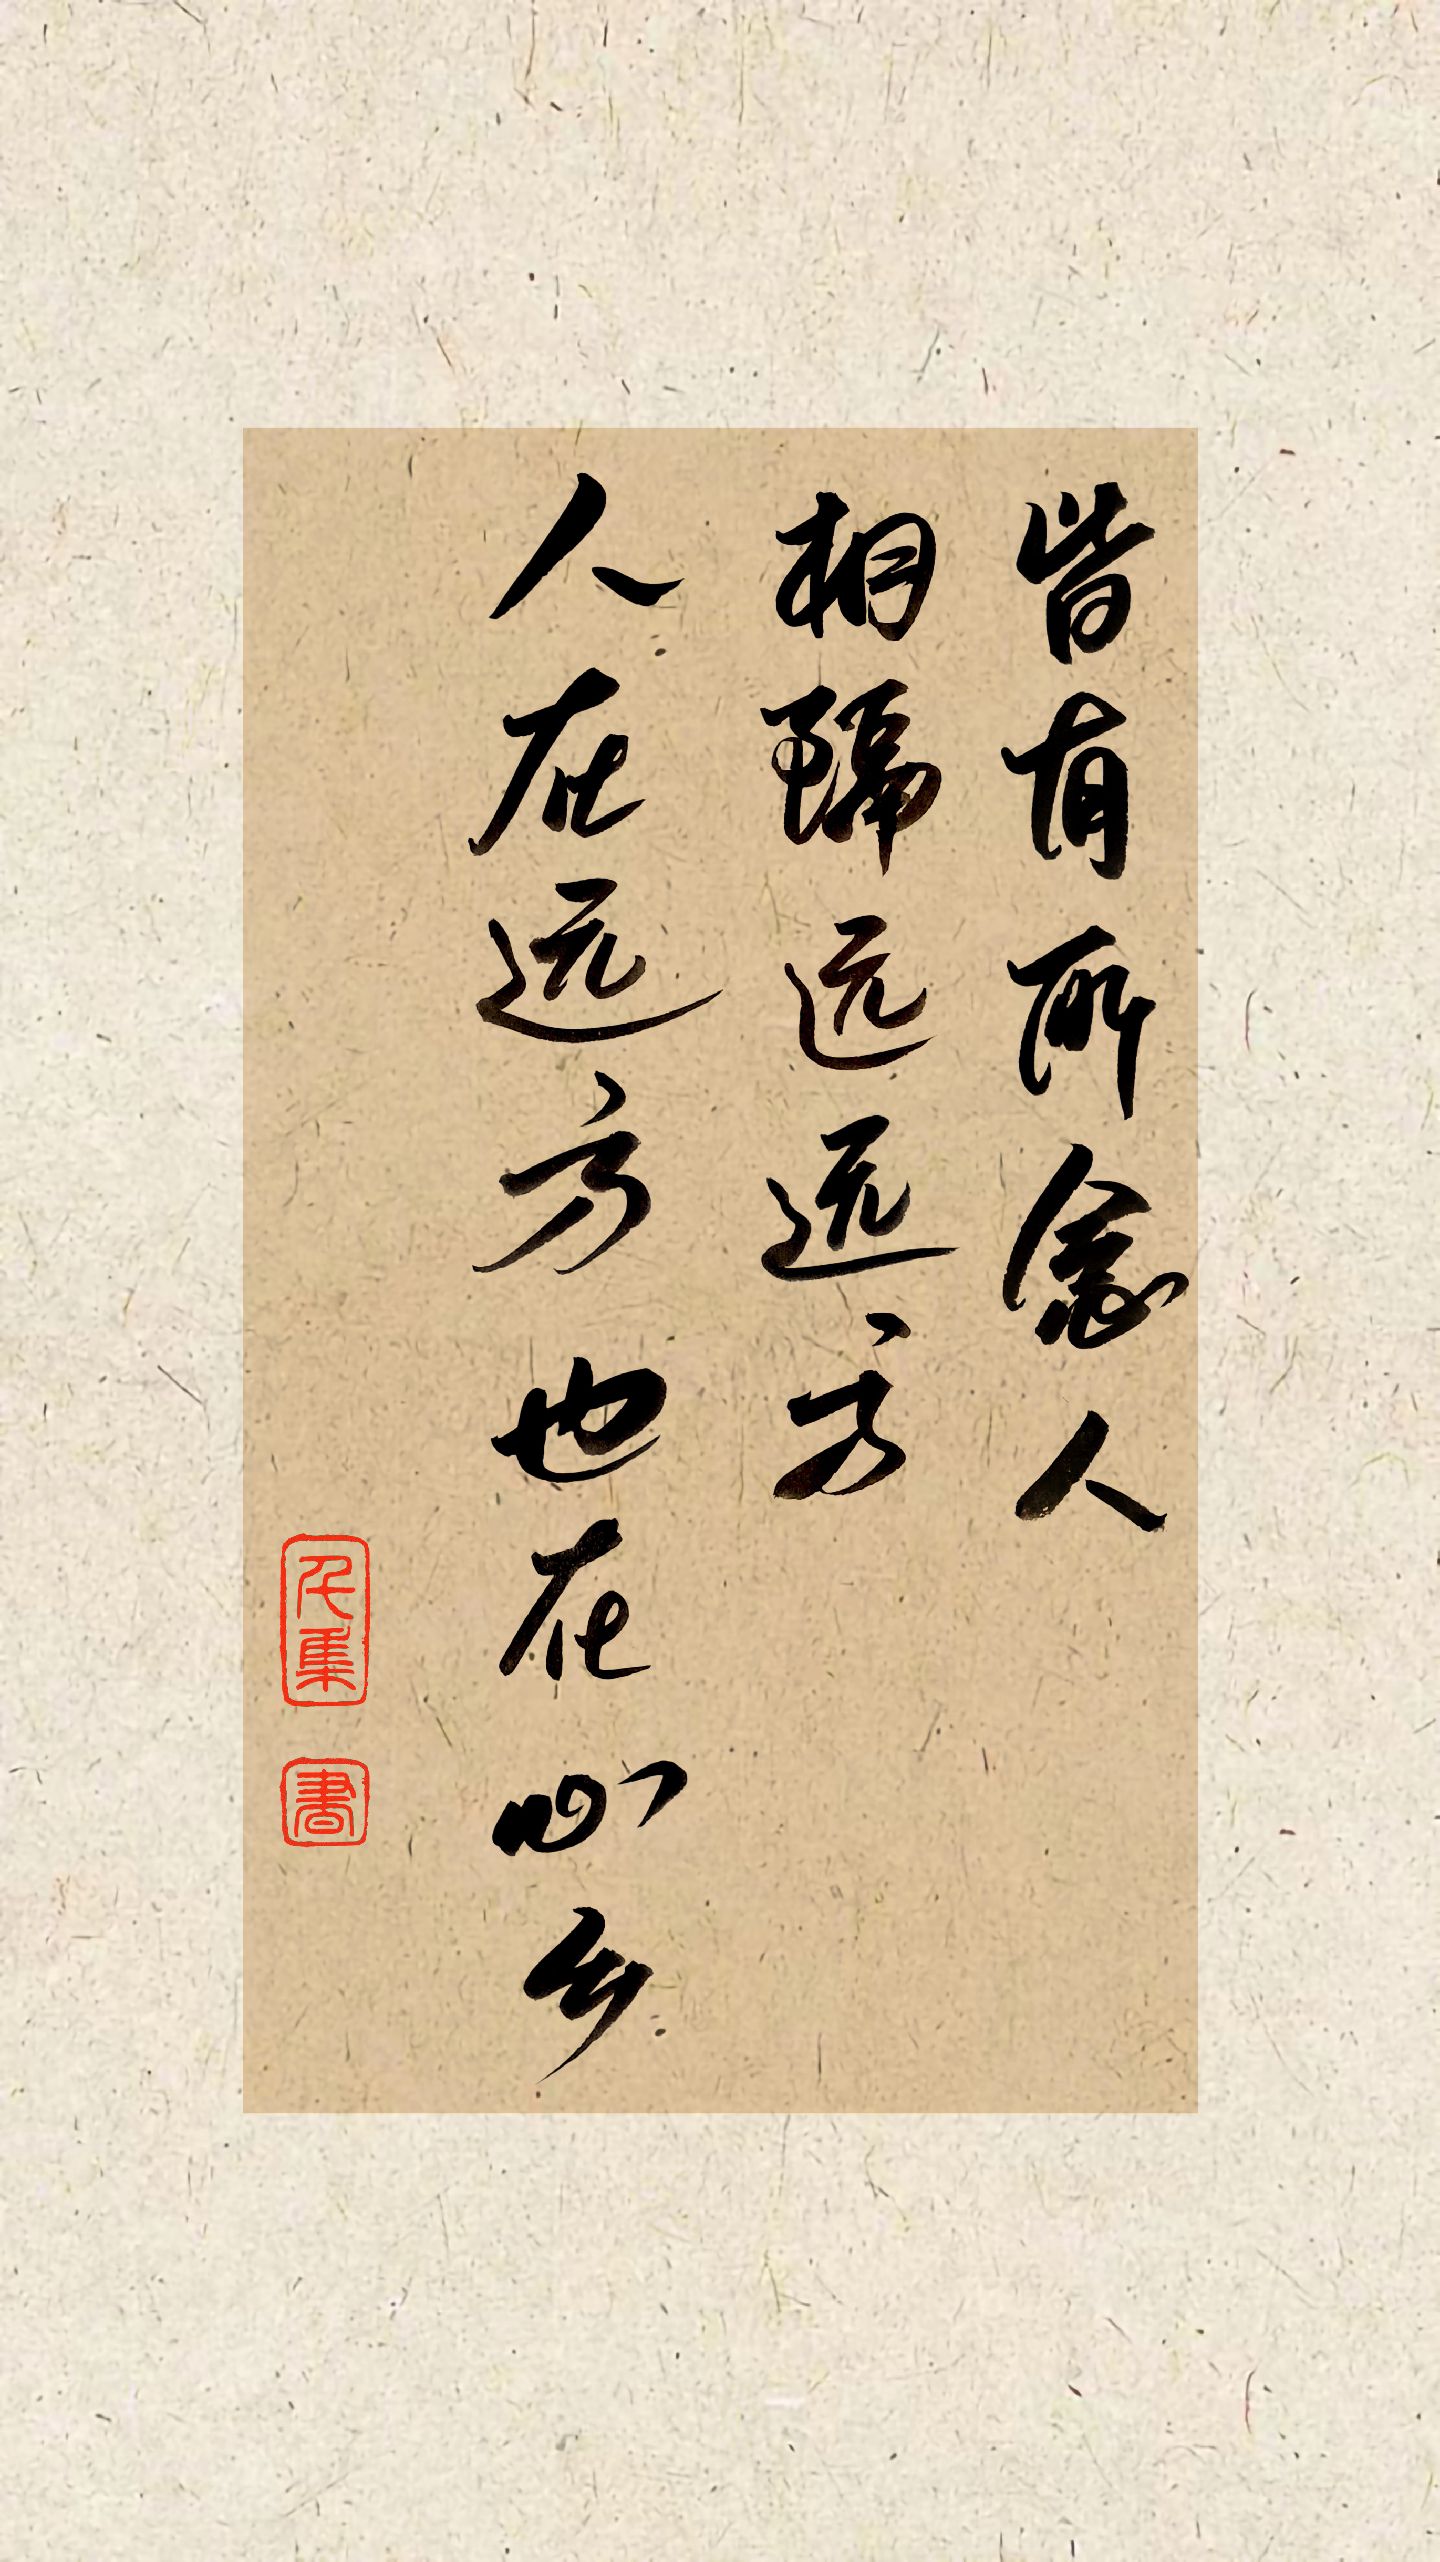 皆有所念人
相隔远远方
人在远方也在心乡
集
書